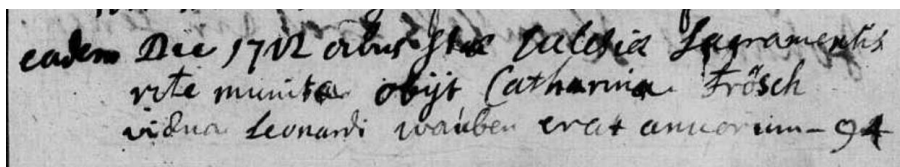 eadem Die 1712 oibus Stae Ecclesiae Sacramentis
rite munita obijt Catharina Frösch
vidua Leonardi wauben erat annorum - 94